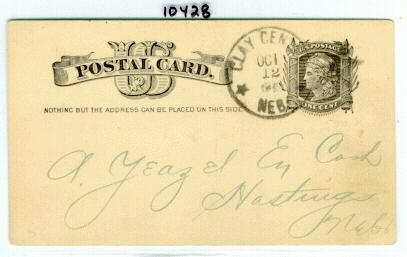 10428
US
POSTAL CARD.
NOTHING BUT THE ADDRESS CAN BE PLACED ON THIS SIDE
CLAY CEN
OCT
12
NEB.
U.S. POSTAGE
ONE CENT
A. Yeazel En Cash
Hastings
Nebr